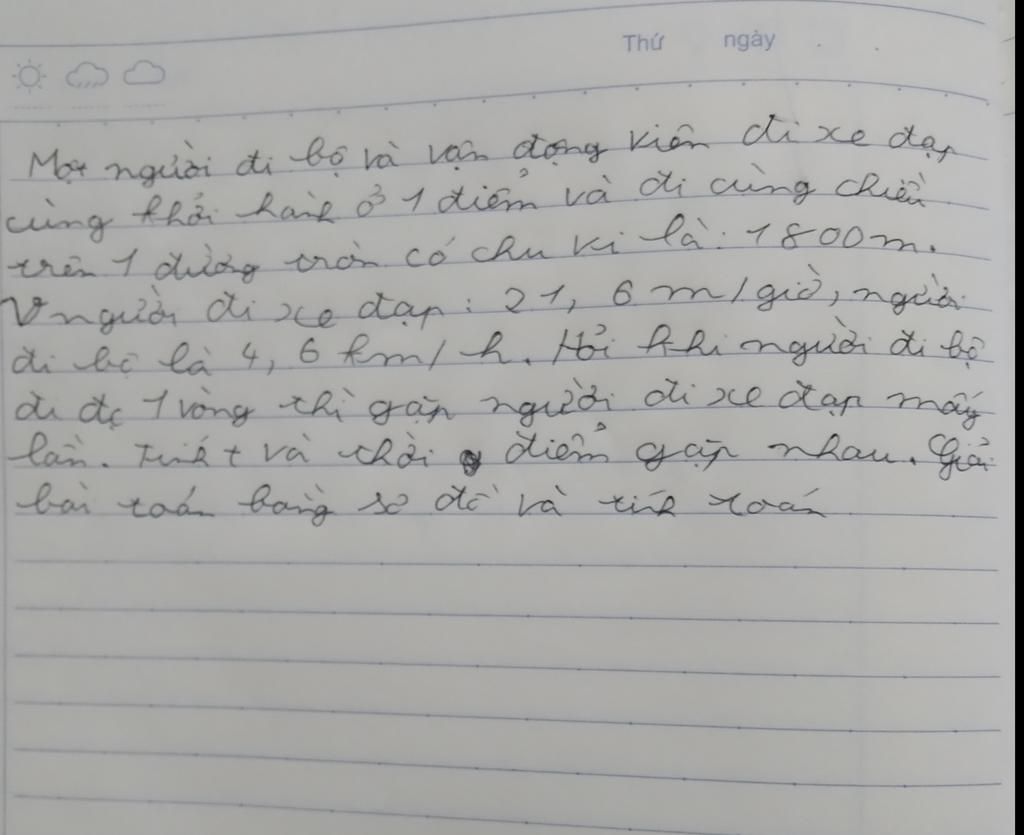 Thứ ngày
Một người đi bộ và vận động viên đi xe đạp
cùng khởi hành ở 1 điểm và đi cùng chiều
trên 1 đường tròn có chu vi là: 1800m.
V người đi xe đạp: 21, 6 m/giờ, người
đi bộ là 4, 6 km/h. Hỏi khi người đi bộ
đi đc 1 vòng thì gặp người đi xe đạp mấy
lần. Tính t và thời điểm gặp nhau. Giải
bài toán bằng sơ đồ và tính toán